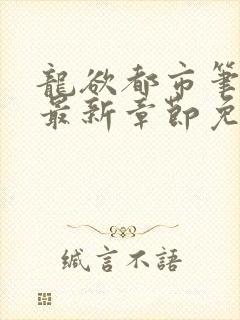 龍欲都市筆
最新章節免
緘言不語